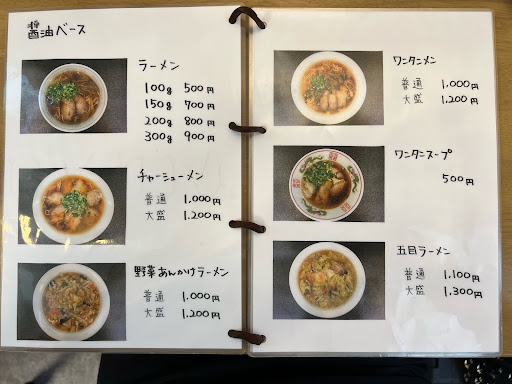 醤油ベース
ラーメン
100g 500円
150g 700円
200g 800円
300g 900円
チャーシューメン
普通 1,000円
大盛 1,200円
野菜あんかけラーメン
普通 1,000円
大盛 1,200円
ワンタンメン
普通 1,000円
大盛 1,200円
ワンタンスープ
500円
五目ラーメン
普通 1,100円
大盛 1,300円